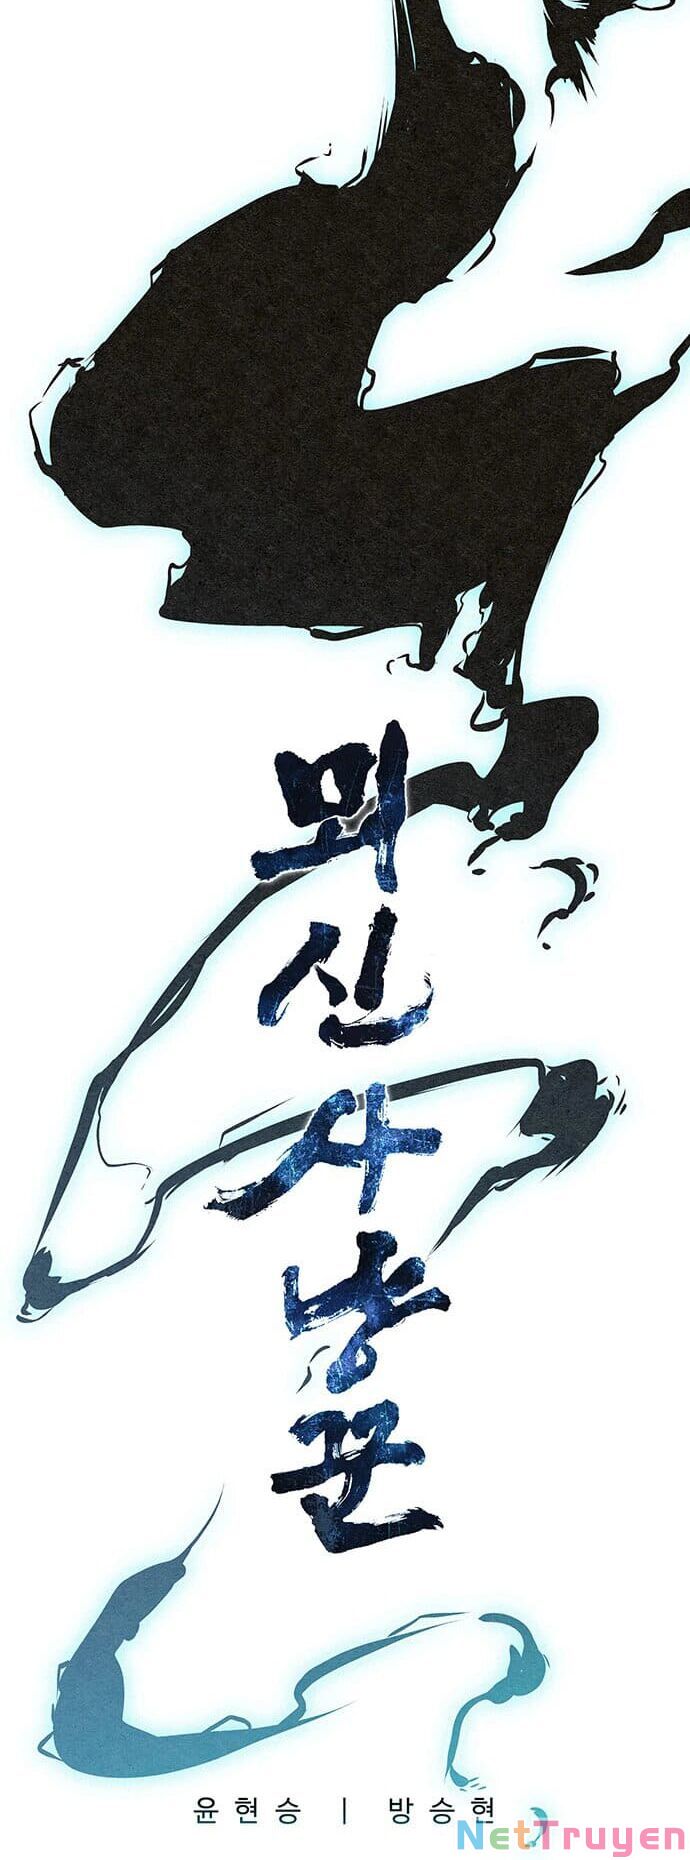 뫼신사냥꾼
윤현승 | 방승현
NetTruyen